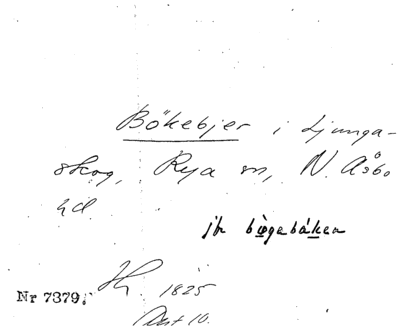 Bökebjer i Ljunga-
skog, Rya sn, N. Åsbo
hd.
jfr bögebáken
Nr 7379. 1825
10.